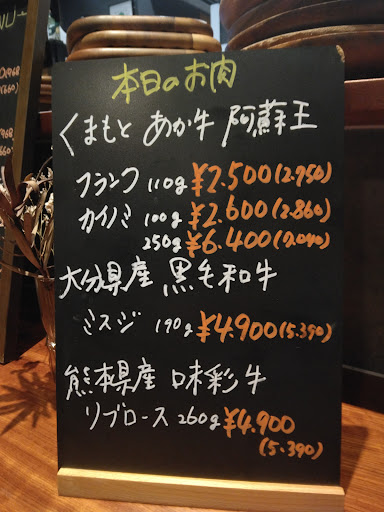 本日のお肉
くまもと あか牛 阿蘇王
フランク 110g ¥2.500(2.750)
カイノミ 100g ¥2.600(2.860)
250g ¥6.400(7.040)
大分県産 黒毛和牛
ミスジ 190g ¥4.900(5.390)
熊本県産 味彩牛
リブロース 260g ¥4.900
(5.390)